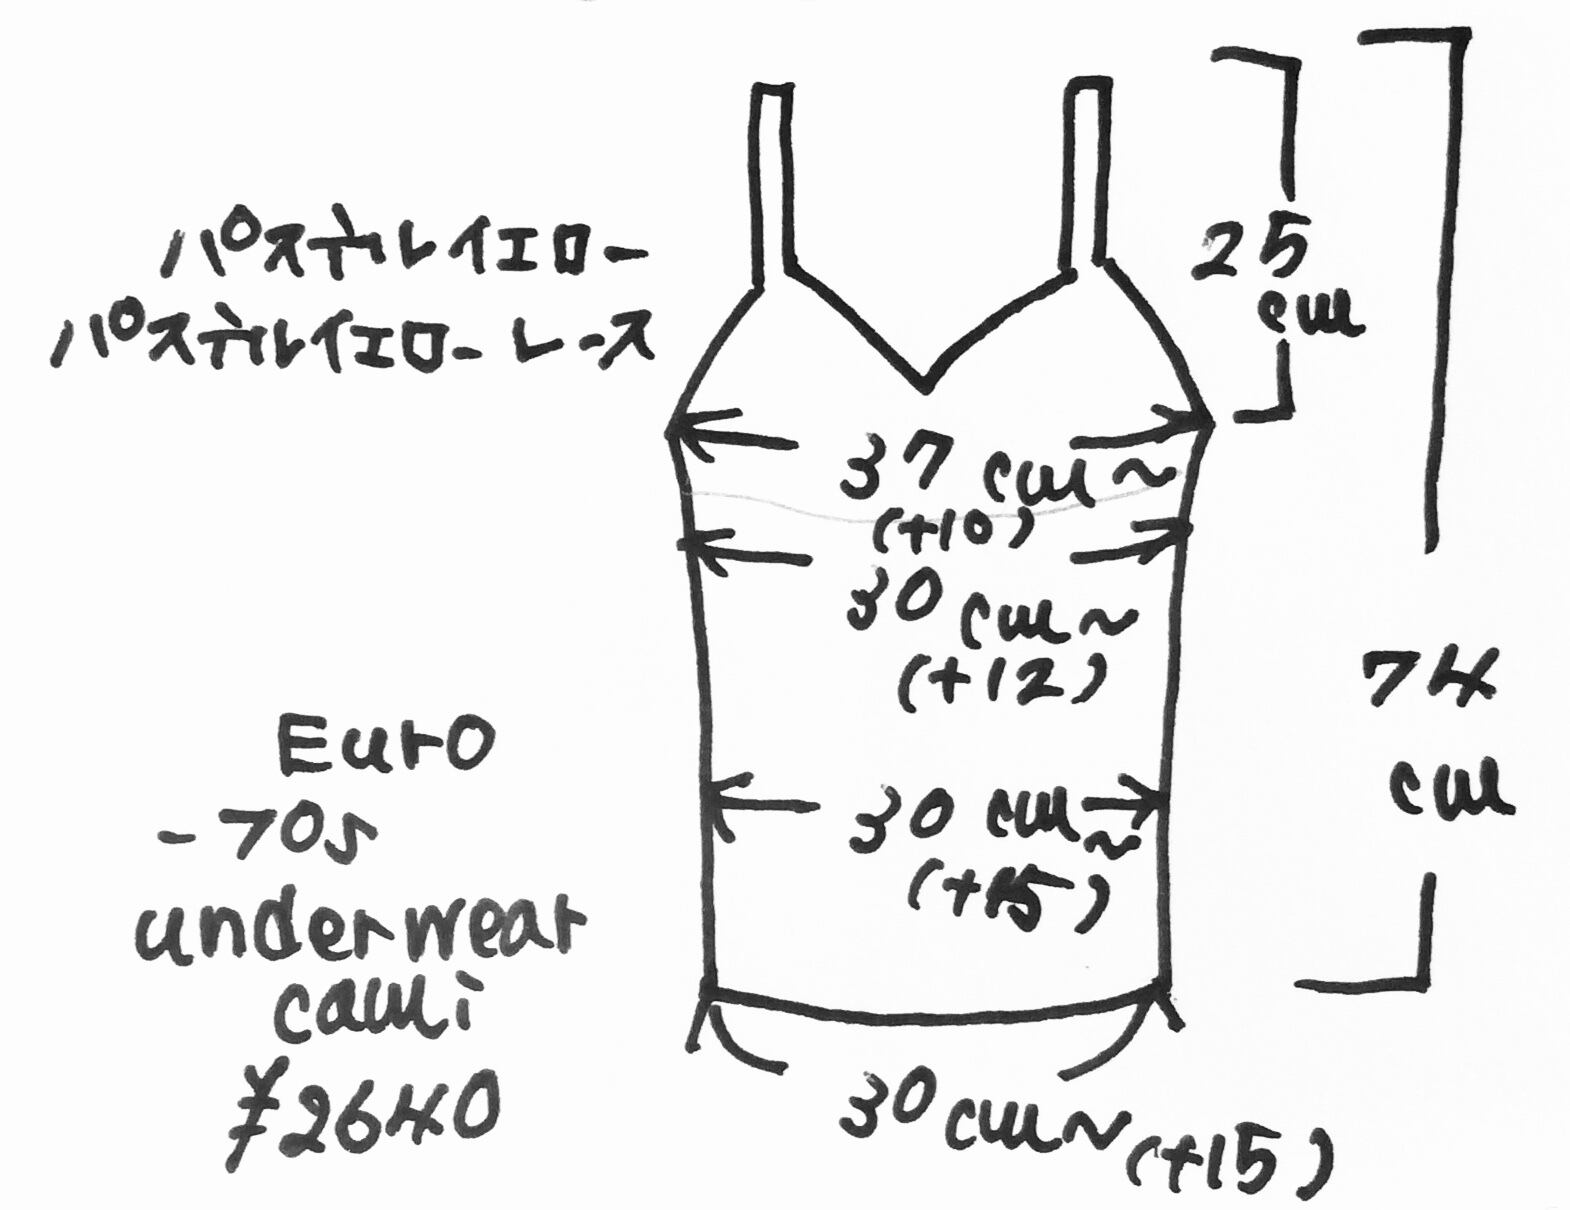 パステルイエロー
パステルイエローレース
25
cm
37 cm~
(+10)
30 cm~
(+12)
74
cm
30 cm~
(+15)
Euro
-70s
underwear
cami
¥2640
30cm~(+15)